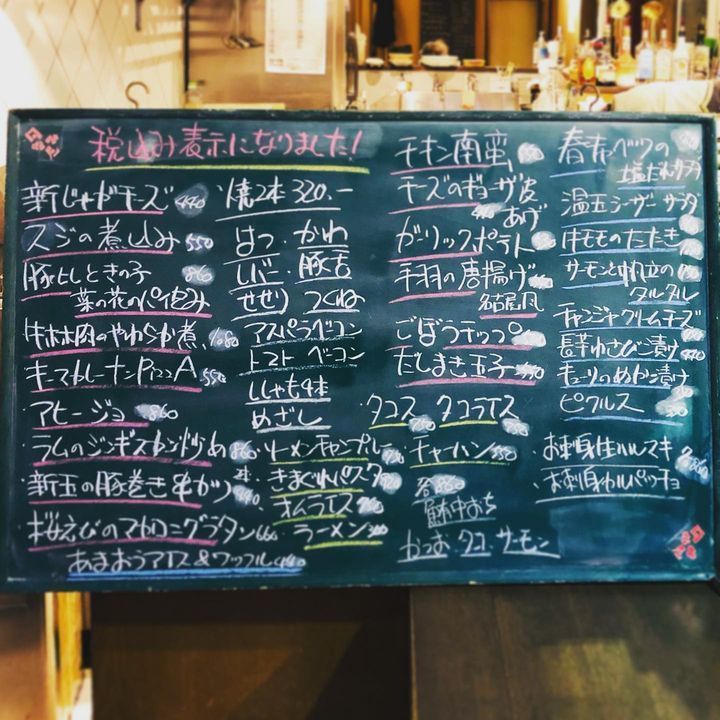 税込み表示になりました!
新じゃがチーズ 440
スジの煮込み 550
豚ヒレときの子 860
菜の花のパイ包み
牛ホホ肉のやわらか煮 1080
キーマカレーナンPIZZA 550
アヒージョ 860
ラムのジンギスカン炒め 860
新玉の豚巻き串かつ 440
桜えびのマカロニグラタン 660
あまおうアイス&ワッフル 440
焼2本 320.-
はつ・かわ
レバー・豚舌
せせり つくね
アスパラベーコン
トマト ベーコン
ししゃも4本
めざし
ソーメンチャンプルー
きまぐれパスタ
オムライス
ラーメン
チキン南蛮
チーズのギョーザ皮
あげ
ガーリックポテト
手羽の唐揚げ
名古屋風
ごぼうチップ
だしまき玉子
タコス タコライス
チャーハン 550
各 860
かつお・タコ・サーモン
春キャベツの
塩だれサラダ
温玉シーザーサラダ
サーモンと帆立の
タルタル
チャンジャクリームチーズ
長芋わさび漬け 440
キューリのぬか漬け
ピクルス
お刺身生ハルマキ
お刺身カルパッチョ
860